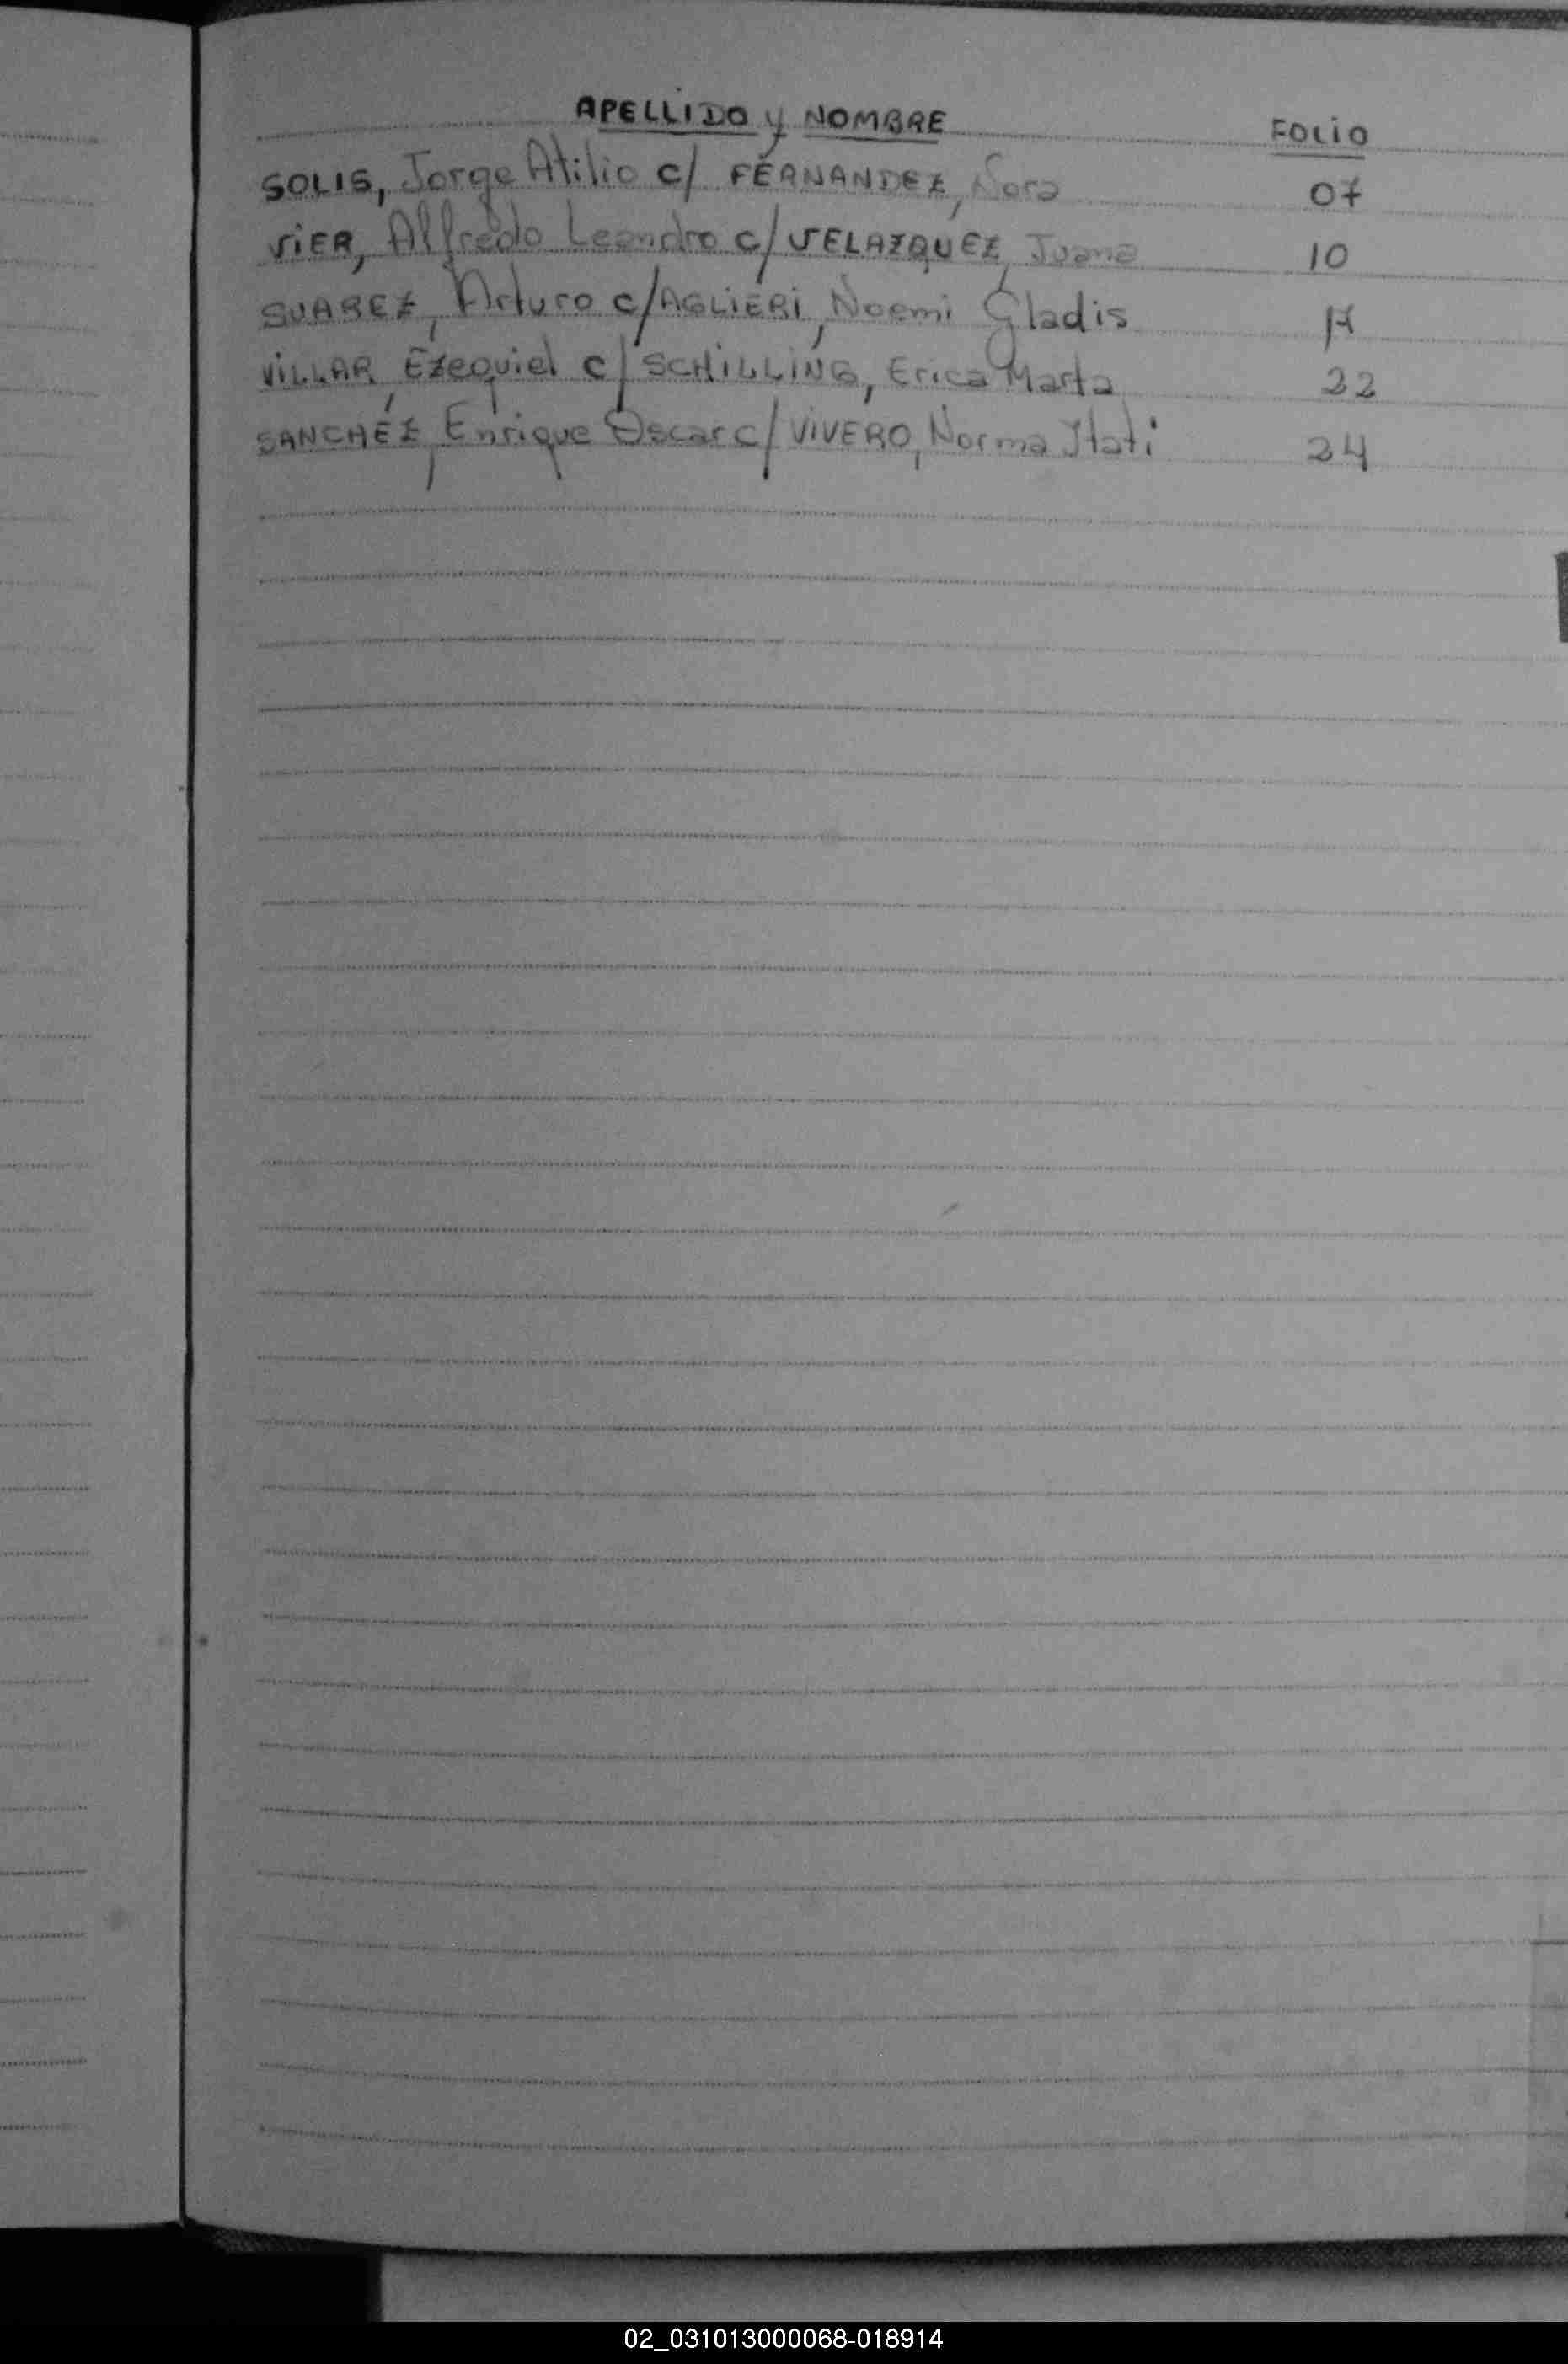 APELLIDO y NOMBRE FOLIO
SOLIS, Jorge Atilio c/ FERNANDEZ, Nora 07
VIER, Alfredo Leandro c/ VELAZQUEZ, Juana 10
SUAREZ, Arturo c/ AGLIERI, Noemi Gladis 17
VILLAR, Ezequiel c/ SCHILLING, Erica Marta 22
SANCHEZ, Enrique Oscar c/ VIVERO, Norma Itati 24
02_031013000068-018914